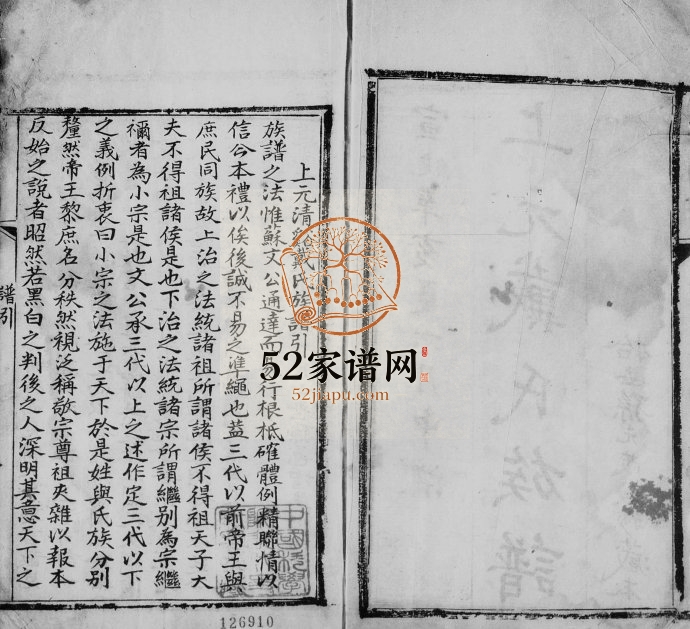 上元清谿戴氏族譜引
族譜之法惟蘇文公通達而行根柢確體例精聯情以
信合本禮以俟後誠不易之準繩也蓋三代以前帝王與
庶民同族故上治之法統諸祖所謂諸侯不得祖天子大
夫不得祖諸侯是也下治之法統諸宗所謂繼別為宗繼
禰者為小宗是也文公承三代以上之述作定三代以下
之義例折衷曰小宗之法施于天下於是姓與氏族分別
釐然帝王黎庶名分秩然視泛稱敬宗尊祖夾雜以報本
反始之說者昭然若黑白之判後之人深明其意天下之
譜引
52家谱网
52jiapu.com
126910
上元戴氏族譜